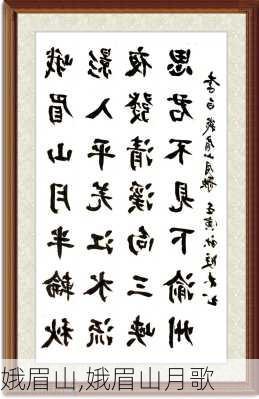 峨眉山月半輪秋
影入平羌江水流
夜發清溪向三峽
思君不見下渝州
李白峨眉山月歌
娥眉山,娥眉山月歌